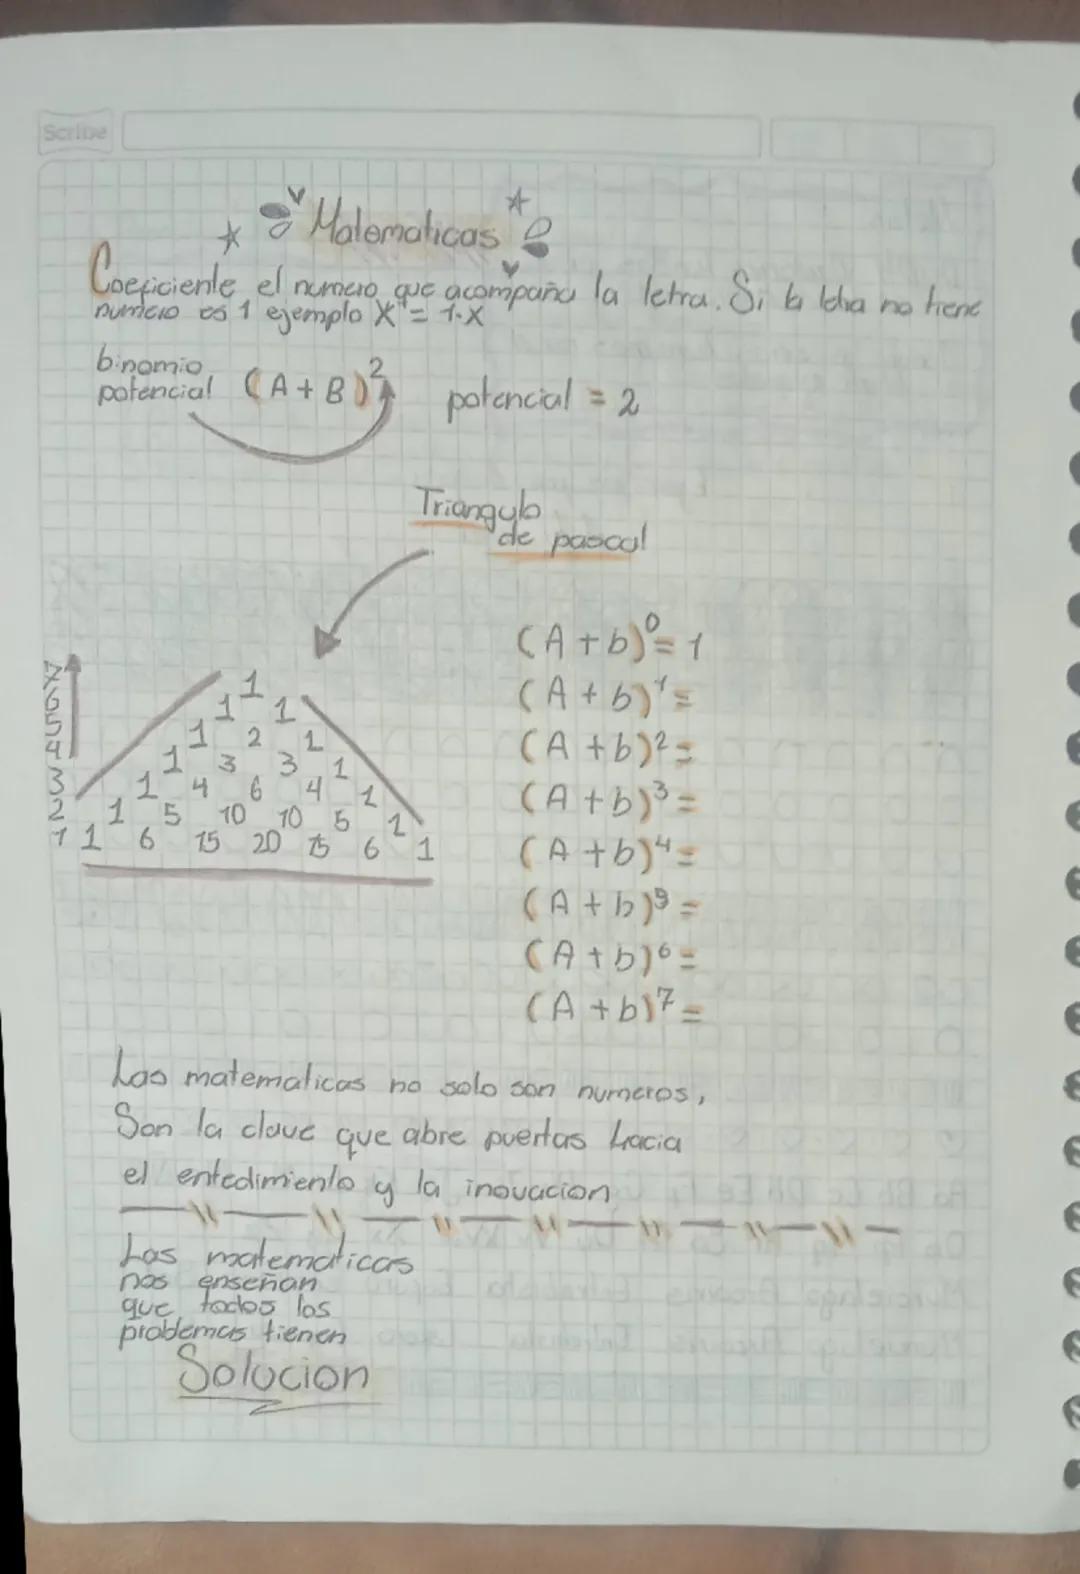 Scribe
Matematicas
Coeficiente el numero que acompaña la letra. Si la letra no tiene
numero es 1 ejemplo X = 1·X
binomio
potencial (A + B)² potencial = 2
Triangulo
de pascal
(A + b)⁰ = 1
(A + b)¹ =
(A + b)² =
(A + b)³ =
(A + b)⁴ =
(A + b)⁵ =
(A + b)⁶ =
(A + b)⁷ =
7 1
6 1 1
5 1 2 1
4 1 3 3 1
3 1 4 6 4 1
2 1 5 10 10 5 1
1 1 6 15 20 15 6 1
Las matematicas no solo son numeros,
Son la clave que abre puertas hacia
el entedimiento y la inovacion
Las matematicas
nos enseñan
que todos los
problemas tienen
Solucion